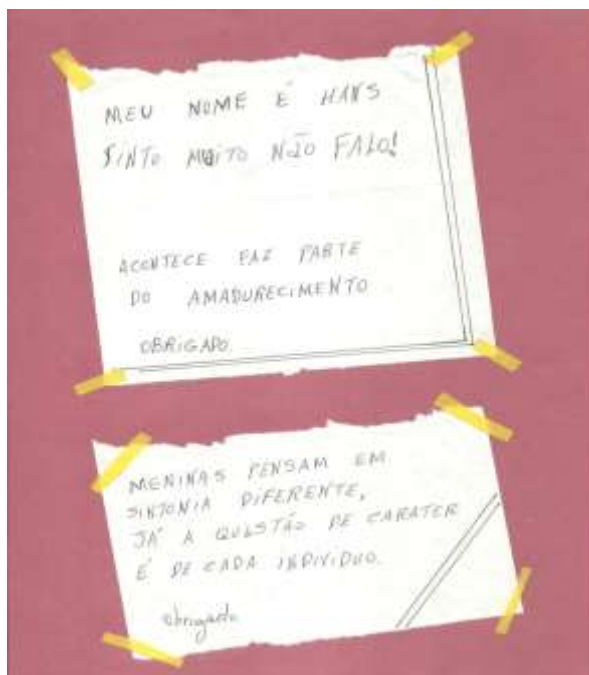 MEU NOME É HANS
SINTO MUITO NÃO FALO!
ACONTECE FAZ PARTE
DO AMADURECIMENTO
OBRIGADO
MENINAS PENSAM EM
SINTONIA DIFERENTE,
JÁ A QUESTÃO DE CARATER
É DE CADA INDIVIDUO.
Obrigado